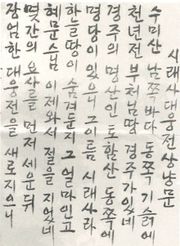 시래사대웅전상냥문
수미산 남쪽바다 동쪽 기슭에
천년전 부처님땅 경주가 있네
경주의 명산인 토함산 동쪽에
명당이 있으니 그 이름 시래사라
하늘땅이 숨겨둔 그 얼마인고
혜문스님 이제와서 절을 지었네
몇간의 요사를 먼저 세운뒤
장엄한 대웅전을 새로 지으니